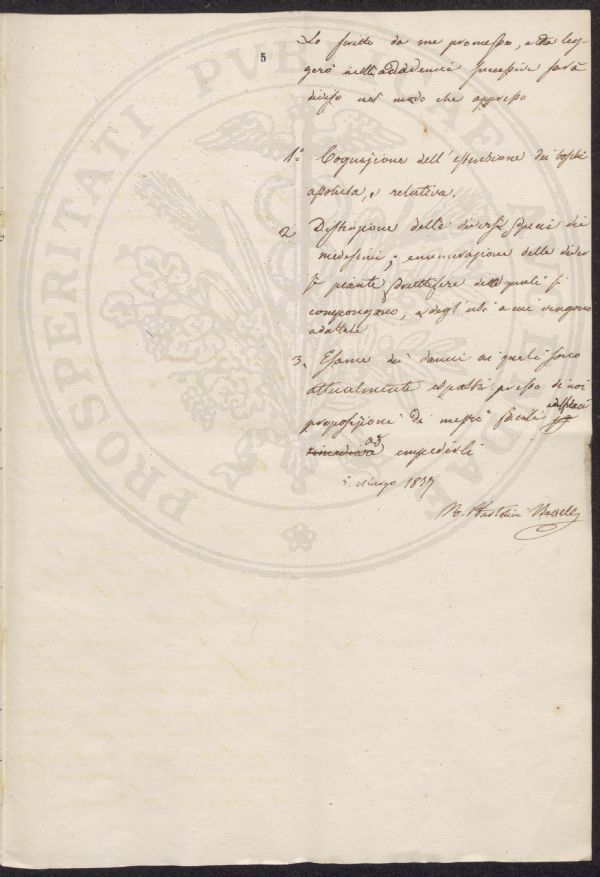 5
Lo scritto da me promesso, e da leg
gersi nelle adunanze successive sarà
diviso nel modo che appresso
1.° Cognizione dell'estensione dei boschi
assoluta, e relativa.
2 Distinzione delle diverse specie dei
medesimi; enumerazione delle diver
se piante delle quali si
compongono, e degl'usi a cui vengono
adattate
3. Esame dei danni ai quali sono
attualmente esposti presso di noi
proposizione di mezzi facili efficaci
ad impedirli
5. Marzo 1837
PROSPERITATI PUBLICAE AUGENDAE